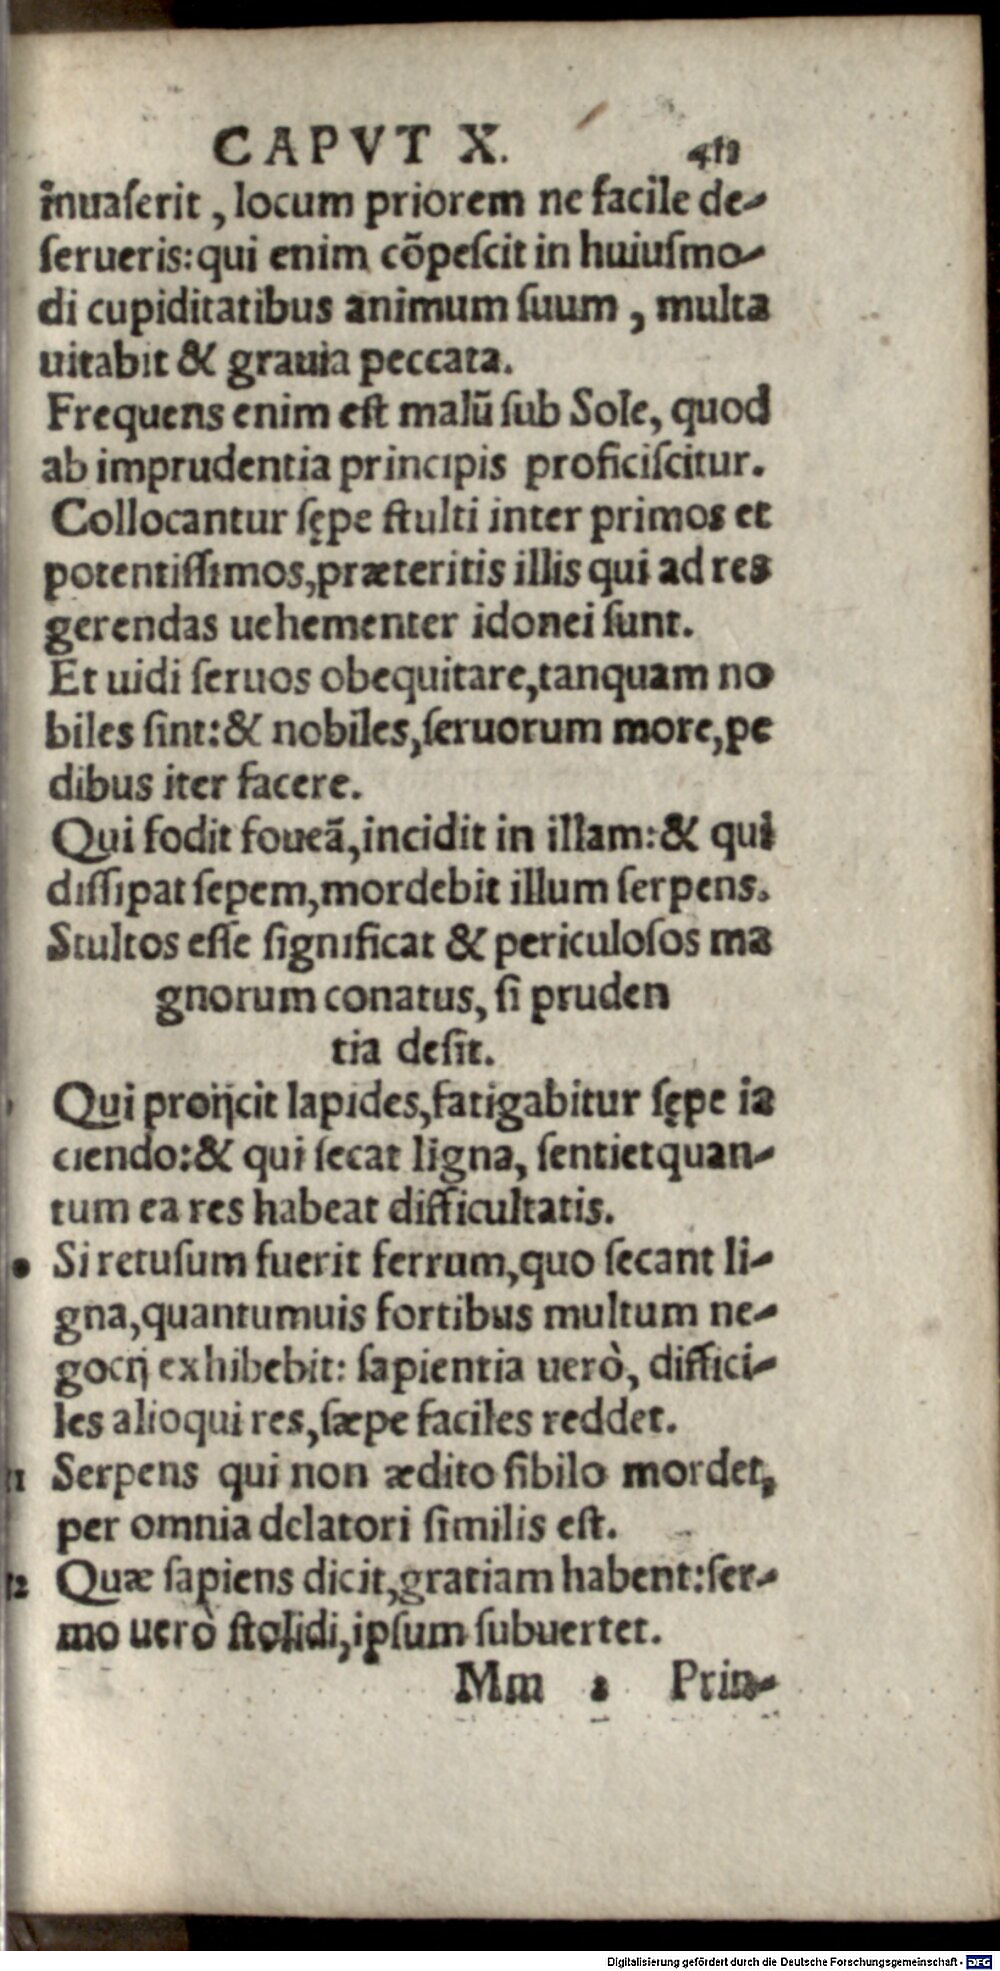 CAPVT X.
inuaſerit, locum priorem ne facile de-
ſerueris: qui enim cõpeſcit in huiuſmo-
di cupiditatibus animum ſuum, multa
uitabit & grauia peccata.
Frequens enim eſt malũ ſub Sole, quod
ab imprudentia principis proficiſcitur.
Collocantur ſępe ſtulti inter primos et
potentiſſimos, præteritis illis qui ad res
gerendas uehementer idonei ſunt.
Et uidi ſeruos obequitare, tanquam no
biles ſint: & nobiles, ſeruorum more, pe
dibus iter facere.
Qui fodit foueã, incidit in illam: & qui
diſſipat ſepem, mordebit illum ſerpens.
Stultos eſſe ſignificat & periculoſos ma
gnorum conatus, ſi pruden
tia deſit.
Qui proijcit lapides, fatigabitur ſępe ia
ciendo: & qui ſecat ligna, ſentiet quan-
tum ea res habeat difficultatis.
Si retuſum fuerit ferrum, quo ſecant li-
gna, quantumuis fortibus multum ne-
gocij exhibebit: ſapientia uerò, diffici-
les alioqui res, ſæpe faciles reddet.
11 Serpens qui non ædito ſibilo mordet,
per omnia delatori ſimilis eſt.
12 Quæ ſapiens dicit, gratiam habent: ſer-
mo uerò ſtolidi, ipſum ſubuertet.
Mm Prin-
Digitalisierung gefördert durch die Deutsche Forschungsgemeinschaft - DFG